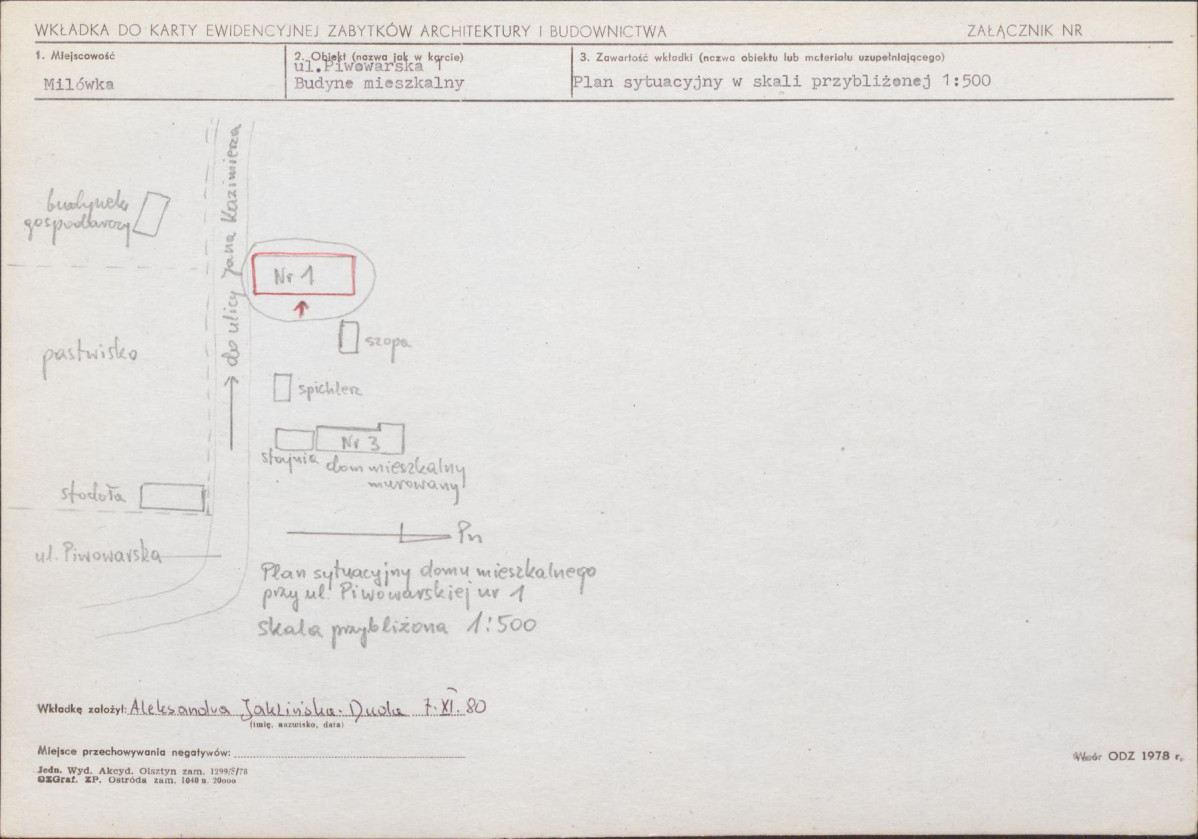 WKŁADKA DO KARTY EWIDENCYJNEJ ZABYTKÓW ARCHITEKTURY I BUDOWNICTWA
ZAŁĄCZNIK NR
1. Miejscowość
Milówka
2. Obiekt (nazwa jak w karcie)
ul.Piwowarska 1
Budyne mieszkalny
3. Zawartość wkładki (nazwa obiektu lub materiału uzupełniającego)
Plan sytuacyjny w skali przybliżonej 1:500
do ulicy Jana Kazimierza
budynek
gospodarczy
Nr 1
szopa
pastwisko
spichlerz
Nr 3
stajnia
dom mieszkalny
murowany
stodoła
Pn
ul. Piwowarska
Plan sytuacyjny domu mieszkalnego
przy ul. Piwowarskiej nr 1
skala przybliżona 1:500
Wkładkę założył: Aleksandra Duda 7.XI.80
(imię, nazwisko, data)
Miejsce przechowywania negatywów:
Jedn. Wyd. Akcyd. Olsztyn zam. 1299/S/78
OZGraf. ZP. Ostróda zam. 1040 n. 20000
Wzór ODZ 1978 r.